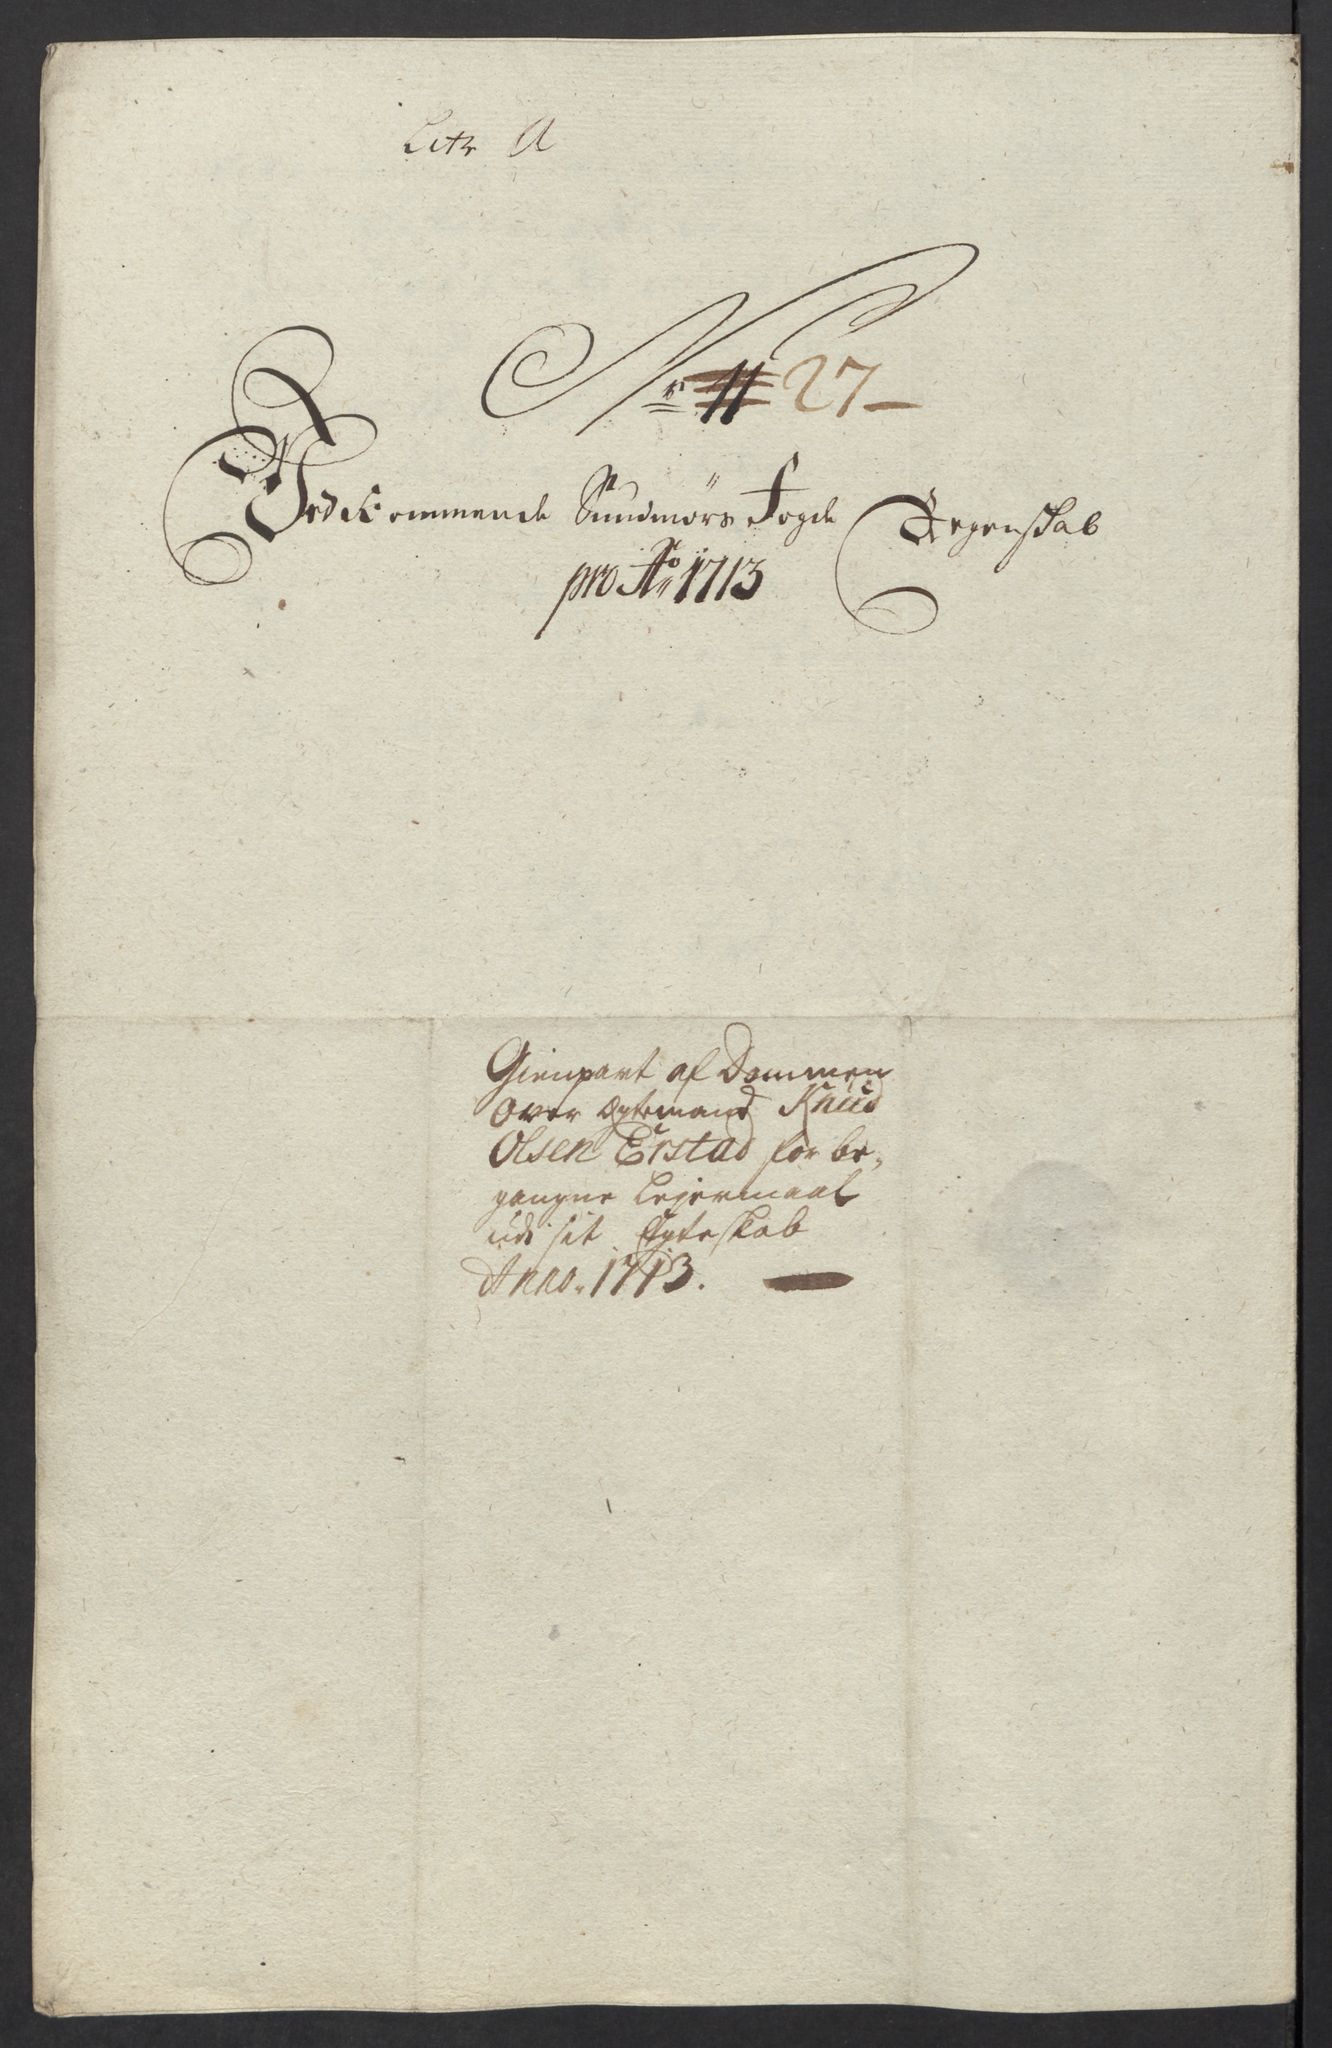 Litr A
No 11 27
Vedkommende Sundmørs Fogde Regenskab
pro Ao 1713
Gienpart af Dommen
over Egtemand Knud
Olsen Erstad for be¬
gangne Lejermaal
udi sit Egteskab
Anno. 1713.